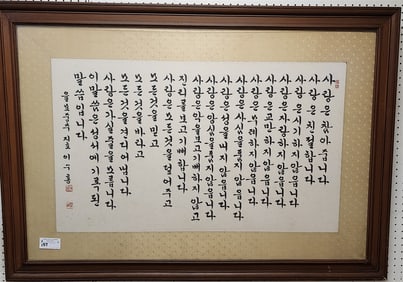 사랑은 참아 줍니다
사랑은 친절합니다
사랑은 시기하지 않읍니다
사랑은 자랑하지 않읍니다
사랑은 교만하지 않읍니다
사랑은 무례하지 않읍니다
사랑은 사심을 품지 않읍니다
사랑은 성을 내지 않읍니다
사랑은 앙심을 품지 않읍니다
사랑은 불의를 보고 기뻐하지 않고
진리를 보고 기뻐합니다
사랑은 모든것을 덮어주고
모든것을 믿고
모든것을 바라고
모든것을 견디어 냅니다
사랑은 가실줄을 모릅니다
이 말씀은 성서에 기록된
말씀입니다